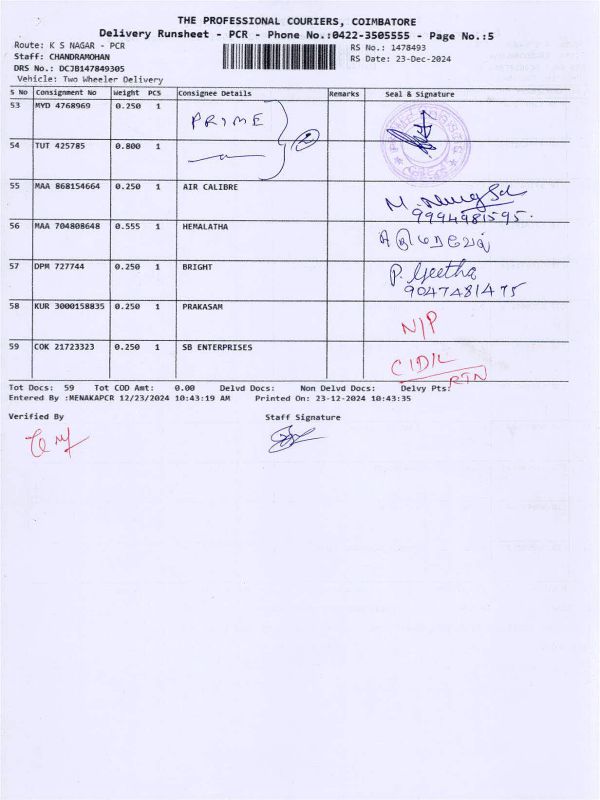 THE PROFESSIONAL COURIERS, COIMBATORE
Delivery Runsheet - PCR - Phone No.:0422-3505555 - Page No.:5
Route: K S NAGAR - PCR RS No.: 1478493
Staff: CHANDRAMOHAN RS Date: 23-Dec-2024
DRS No.: DCJB147849305
Vehicle: Two Wheeler Delivery
S No Consignment No Weight PCS Consignee Details Remarks Seal & Signature
53 MYD 4768969 0.250 1 PRIME
54 TUT 425785 0.800 1
55 MAA 868154664 0.250 1 AIR CALIBRE
9994981595.
56 MAA 704808648 0.555 1 HEMALATHA
57 DPM 727744 0.250 1 BRIGHT P. Geetha
9047481475
58 KUR 3000158835 0.250 1 PRAKASAM N/P
59 COK 21723323 0.250 1 SB ENTERPRISES
RTN
Tot Docs: 59 Tot COD Amt: 0.00 Delvd Docs: Non Delvd Docs: Delvy Pts:
Entered By :MENAKAPCR 12/23/2024 10:43:19 AM Printed On: 23-12-2024 10:43:35
Verified By Staff Signature